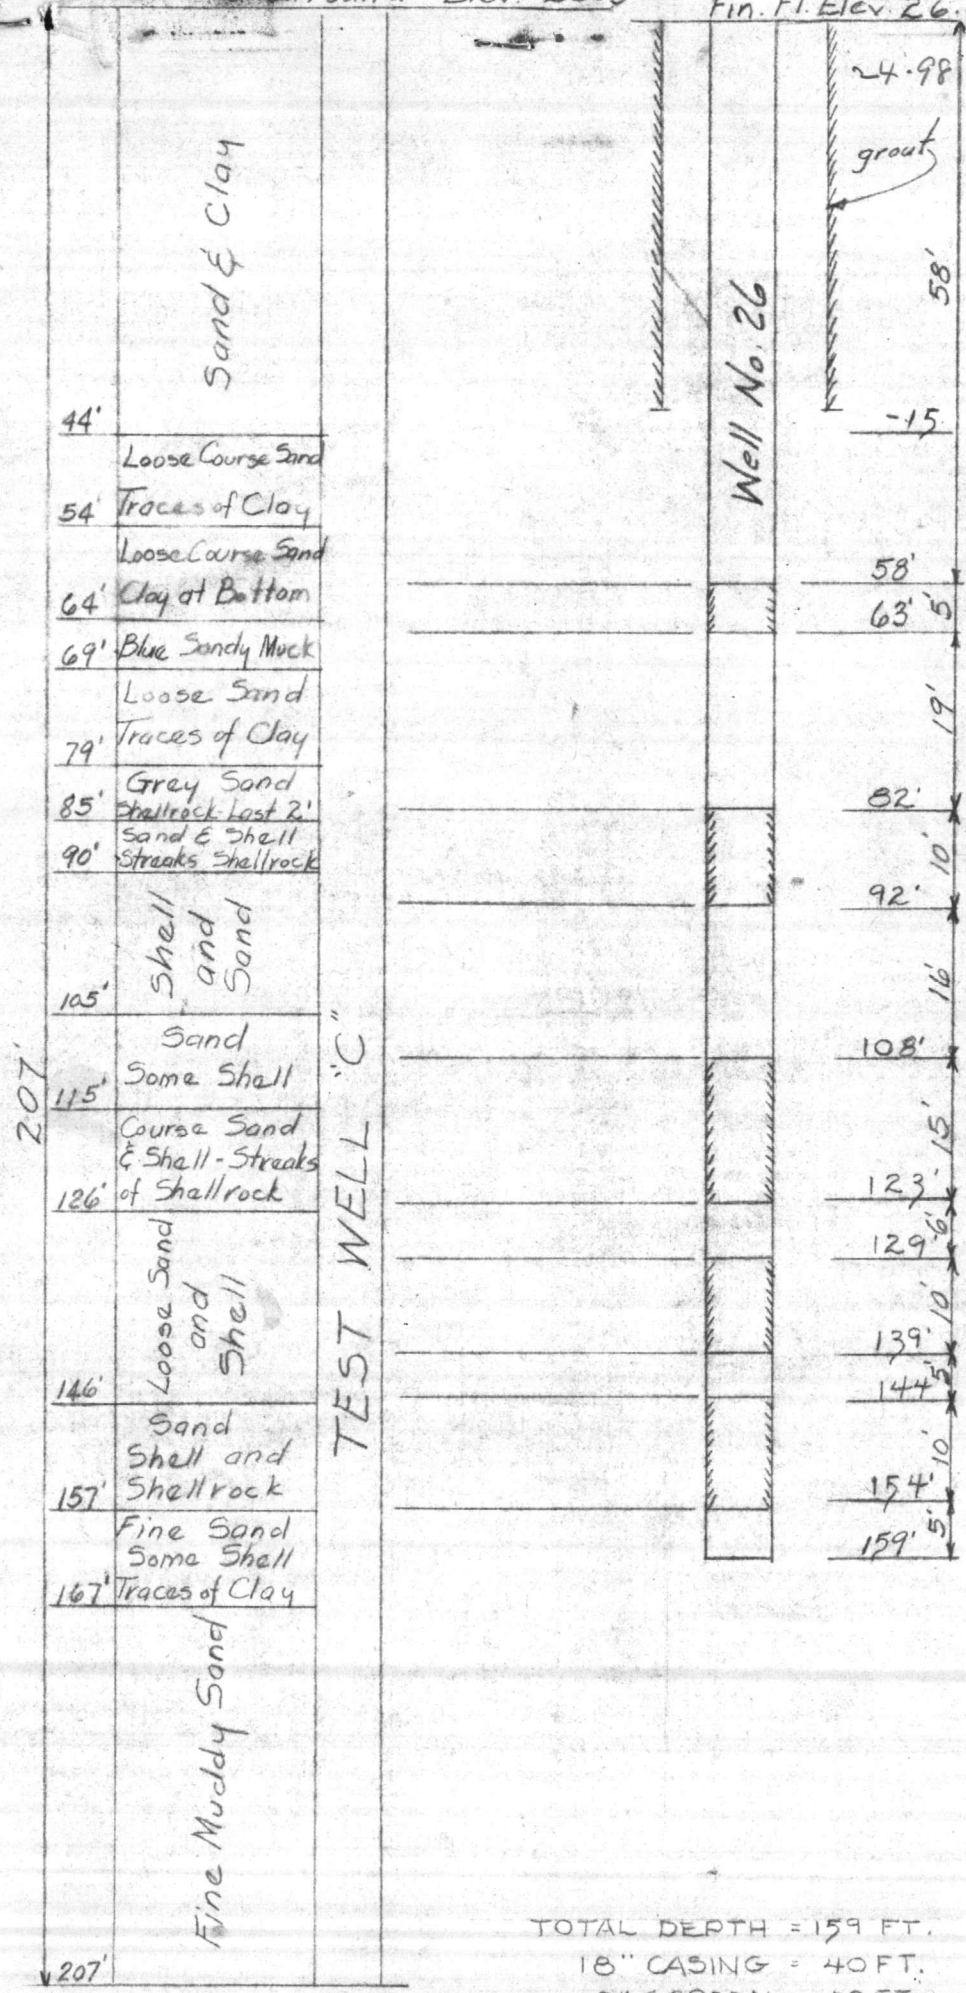 Elev.
Fin. Fl. Elev. 26.
207'
Sand & Clay
44'
Loose Course Sand
54' Traces of Clay
Loose Course Sand
64' Clay at Bottom
69' Blue Sandy Muck
Loose Sand
79' Traces of Clay
Grey Sand
85' Shellrock Last 2'
Sand & Shell
90' Streaks Shellrock
Shell
and
Sand
105'
Sand
115' Some Shell
Course Sand
& Shell - Streaks
126' of Shellrock
Loose Sand
and
Shell
146'
Sand
Shell and
157' Shellrock
Fine Sand
Some Shell
167' Traces of Clay
Fine Muddy Sand
207'
TEST WELL "C"
Well No. 26
24.98
grout
58'
-15
58'
63' 5'
19'
82'
10'
92'
16'
108'
15'
123'
6'
129
10'
139'
5'
144
10'
154'
5'
159'
TOTAL DEPTH = 159 FT.
18" CASING = 40 FT.